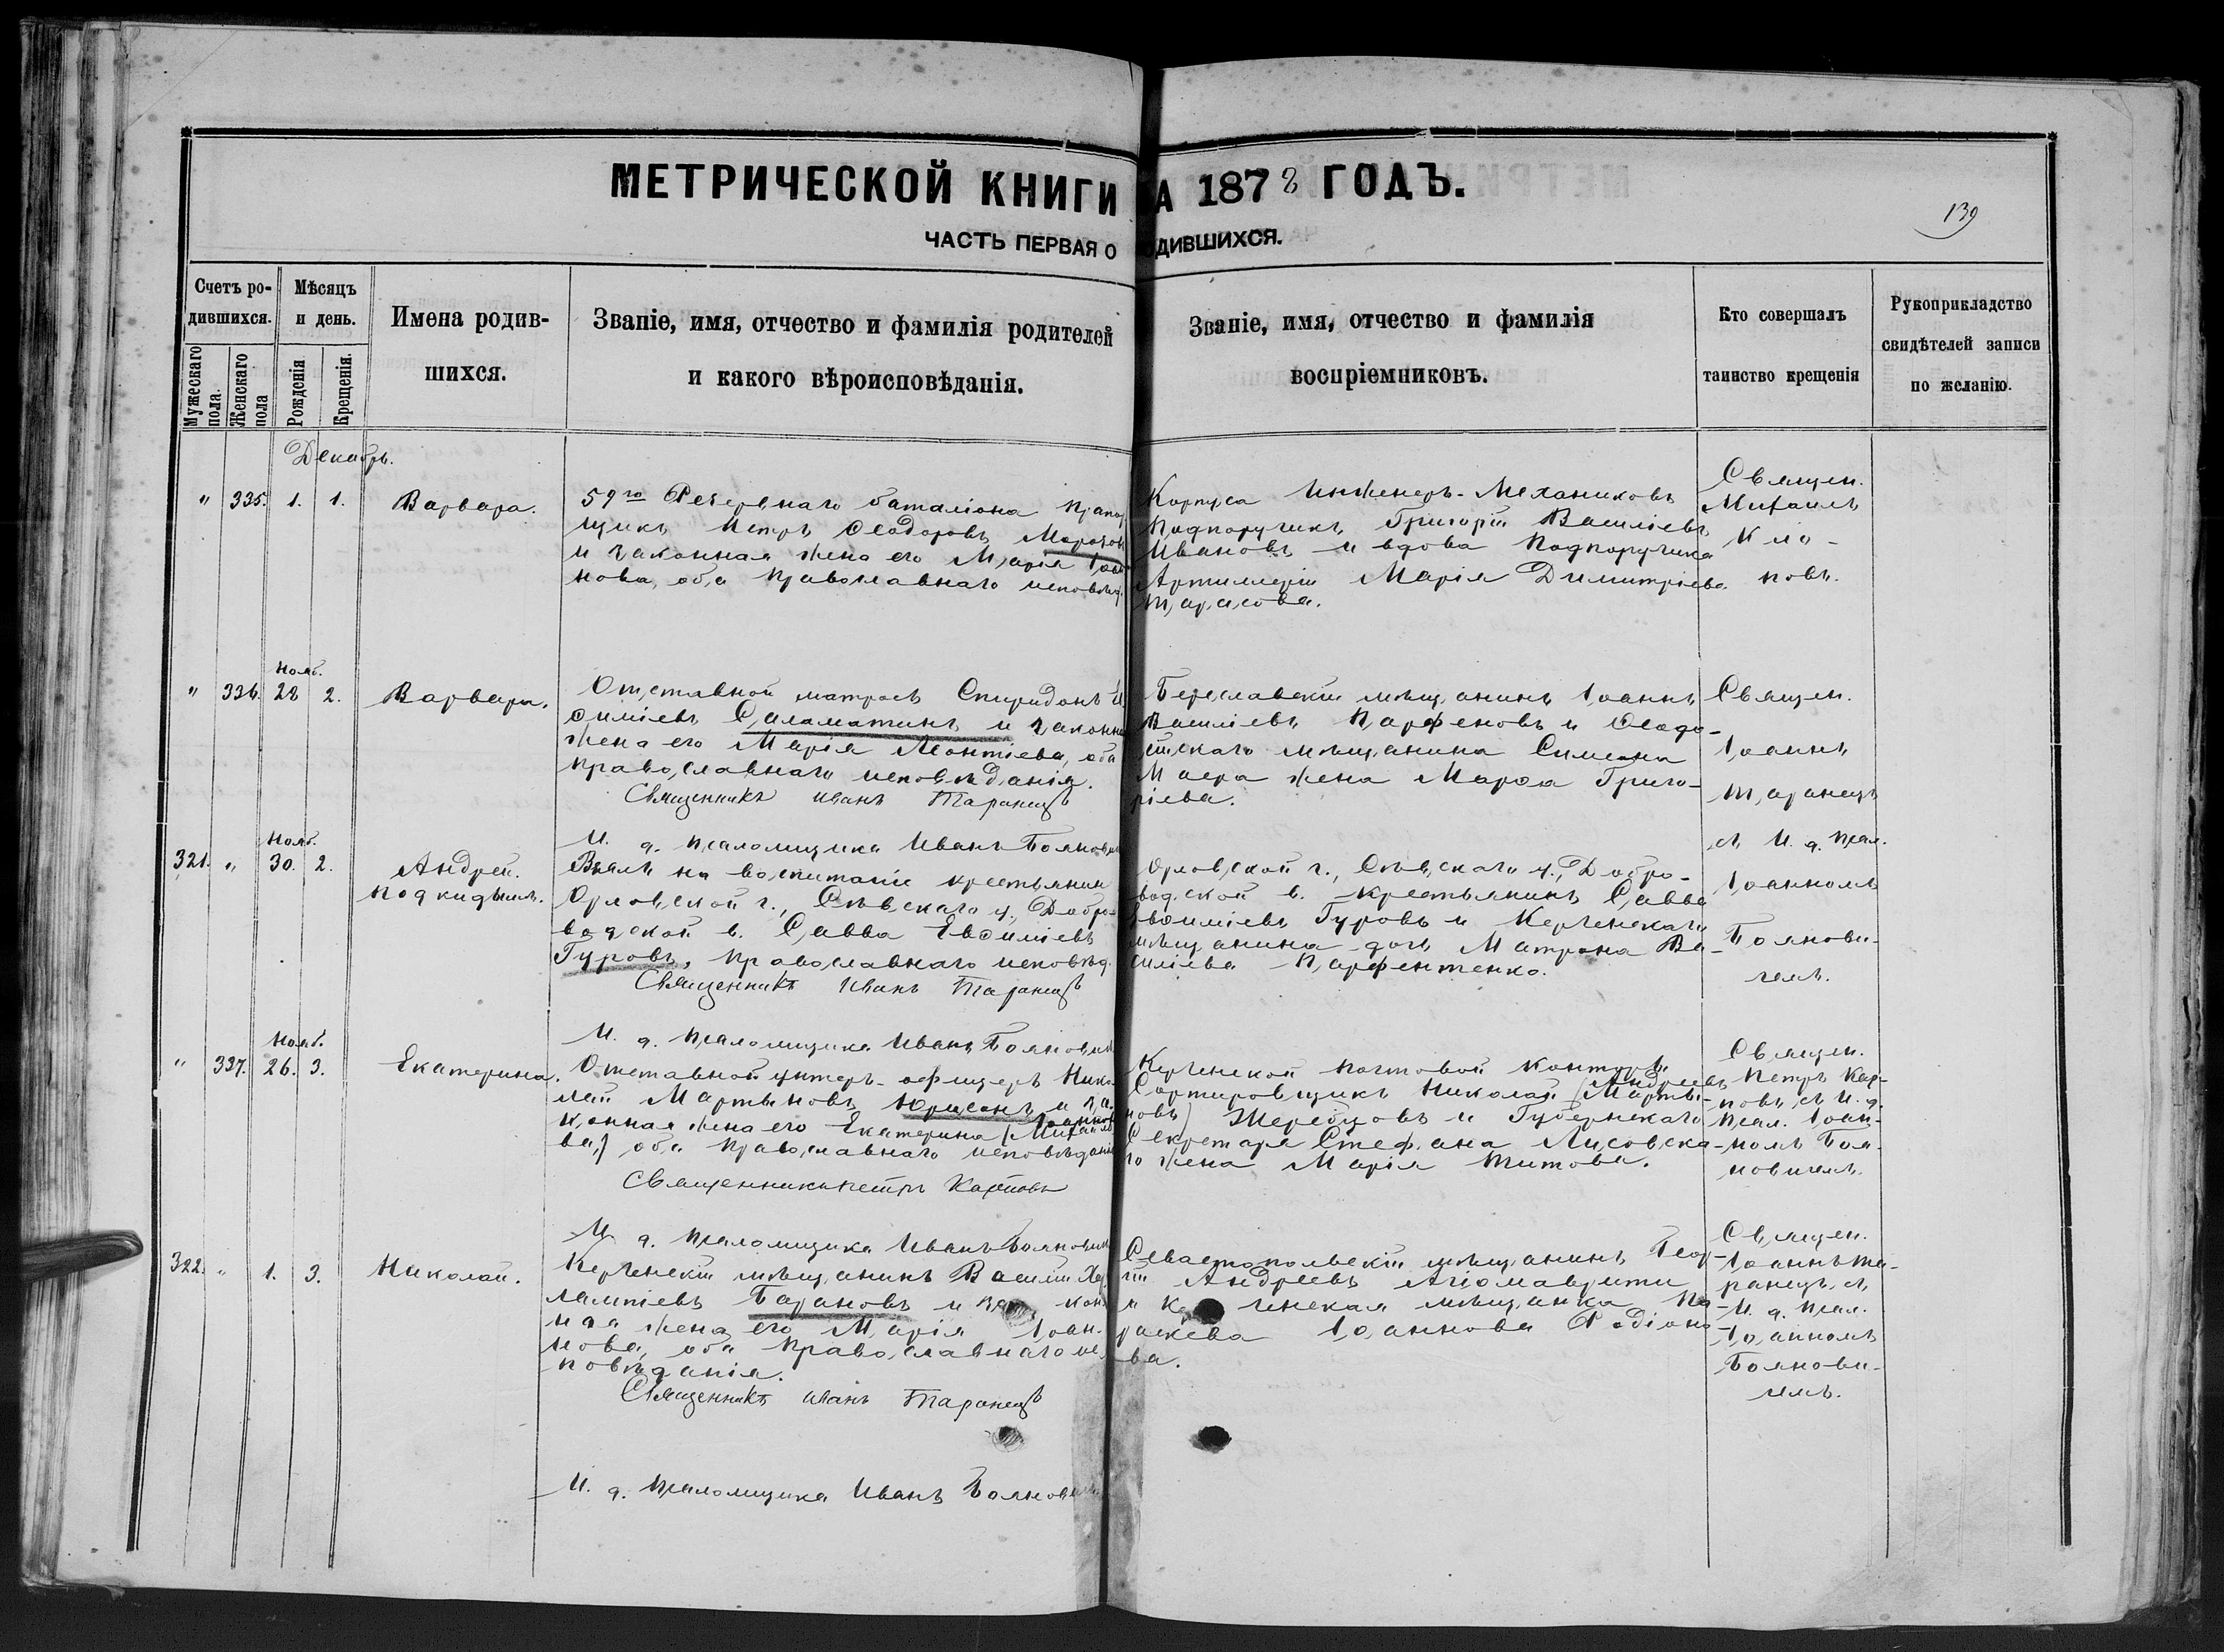 МЕТРИЧЕСКОЙ КНИГИ А 1878 ГОДЪ.
139
ЧАСТЬ ПЕРВАЯ О ДИВШИХСЯ.
Счетъ ро-
дившихся.
Мужескаго
пола.
Женскаго
пола
Мѣсяцъ
и день.
Рожденія
Крещенія.
Имена родив-
шихся.
Званіе, имя, отчество и фамилія родителей
и какого вѣроисповѣданія.
Званіе, имя, отчество и фамилія
воспріемниковъ.
Кто совершалъ
таинство крещенія
Рукоприкладство
свидѣтелей записи
по желанію.
Декабрь.
" 335. 1. 1.
Варвара.
59го Резервнаго баталіона прапор
щикъ Петръ Ѳеодоровъ Морозов
и законная жена его Марія Іоан
нова, оба православнаго исповѣд.
Корпуса Инженеръ-Механиковъ
Подпоручикъ Григорій Василіевъ
Ивановъ и вдова Подпоручика
Артиллеріи Марія Димитріева
Тарасова.
Священ.
Михаилъ
Кло-
повъ.
Нояб.
" 336. 28 2.
Варвара.
Отставной матросъ Спиридонъ
симіевъ Саламатинъ и законна
жена его Марія Леонтіева, оба
православнаго исповѣданія.
Священникъ Иванъ Таранецъ
И. д. псаломщика Иванъ Боянович
Береславскій мѣщанинъ Іоаннъ
Василіевъ Парфеновъ и Ѳеодо-
сійскаго мѣщанина Симеона
Маера жена Марѳа Григо-
ріева.
Священ.
Іоаннъ
Таранецъ
съ И. д. псал.
Іоанномъ
Боянови-
чемъ.
Нояб.
321. " 30. 2.
Андрей.
подкидышъ.
Взялъ на воспитаніе крестьянин
Орловской г., Сѣвскаго у., Добро-
водской в. Савва Евѳиміевъ
Гуровъ, православнаго исповѣд.
Священникъ Иванъ Таранецъ
И. д. псаломщика Иванъ Боянович
Орловской г., Сѣвскаго у., Добро-
водской в. крестьянинъ Савва
Евѳиміевъ Гуровъ и Керченскаго
мѣщанина дочь Матрона Ва-
силіева Парфентенко.
Нояб.
" 337. 26. 3.
Екатерина.
Отставной унтеръ-офицеръ Нико
лай Мартыновъ Юрисонъ и за
конная жена его Екатерина (Михайло
ва,) оба православнаго исповѣдані
Священникъ Петръ Карповъ
И. д. псаломщика Иванъ Боянович
Керченской почтовой конторы
Сортировщикъ Николай Андреевъ (Марты-
новъ) Жеребцовъ и Губернскаго
Секретаря Стефана Лисовска-
го жена Марія Титова.
Священ.
Петръ Кар-
повъ съ И. д.
псал. Іоан-
номъ Боя-
новичемъ.
322. " 1. 3.
Николай.
Керченскій мѣщанинъ Василій Хар
лампіевъ Барановъ и за кон
ная жена его Марія Іоан-
нова, оба православнаго ис
повѣданія.
Священникъ Иванъ Таранецъ
И. д. псаломщика Иванъ Боянович
Севастопольскій мѣщанинъ Геор-
гій Андреевъ Агіомаврити
и Ке ченская мѣщанка Па-
раскева Іоаннова Родіоно-
ва.
Священ.
Іоаннъ Та-
ранецъ, съ
И. д. псал.
Іоанномъ
Боянови-
чемъ.